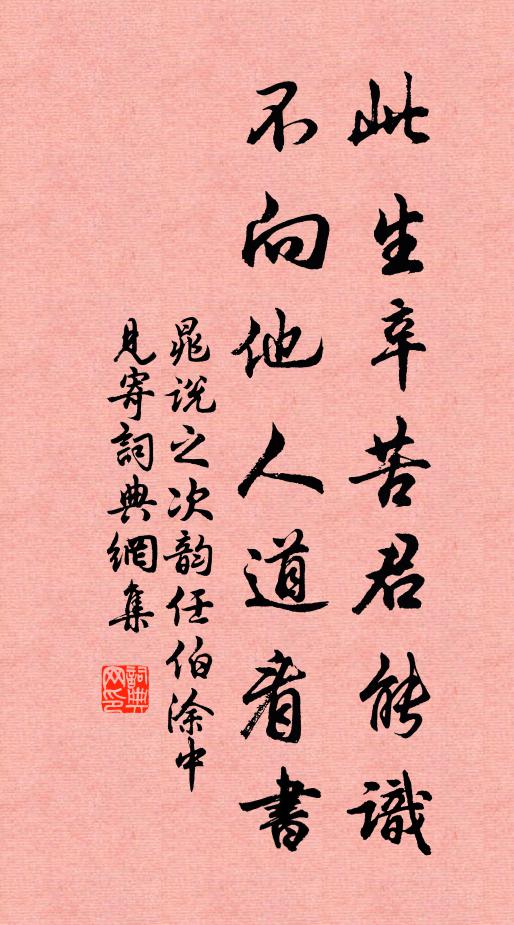 此生辛苦君能識
不向他人道着書
晁說之次韵任伯涂中
見寄詞典網集
詞典網印